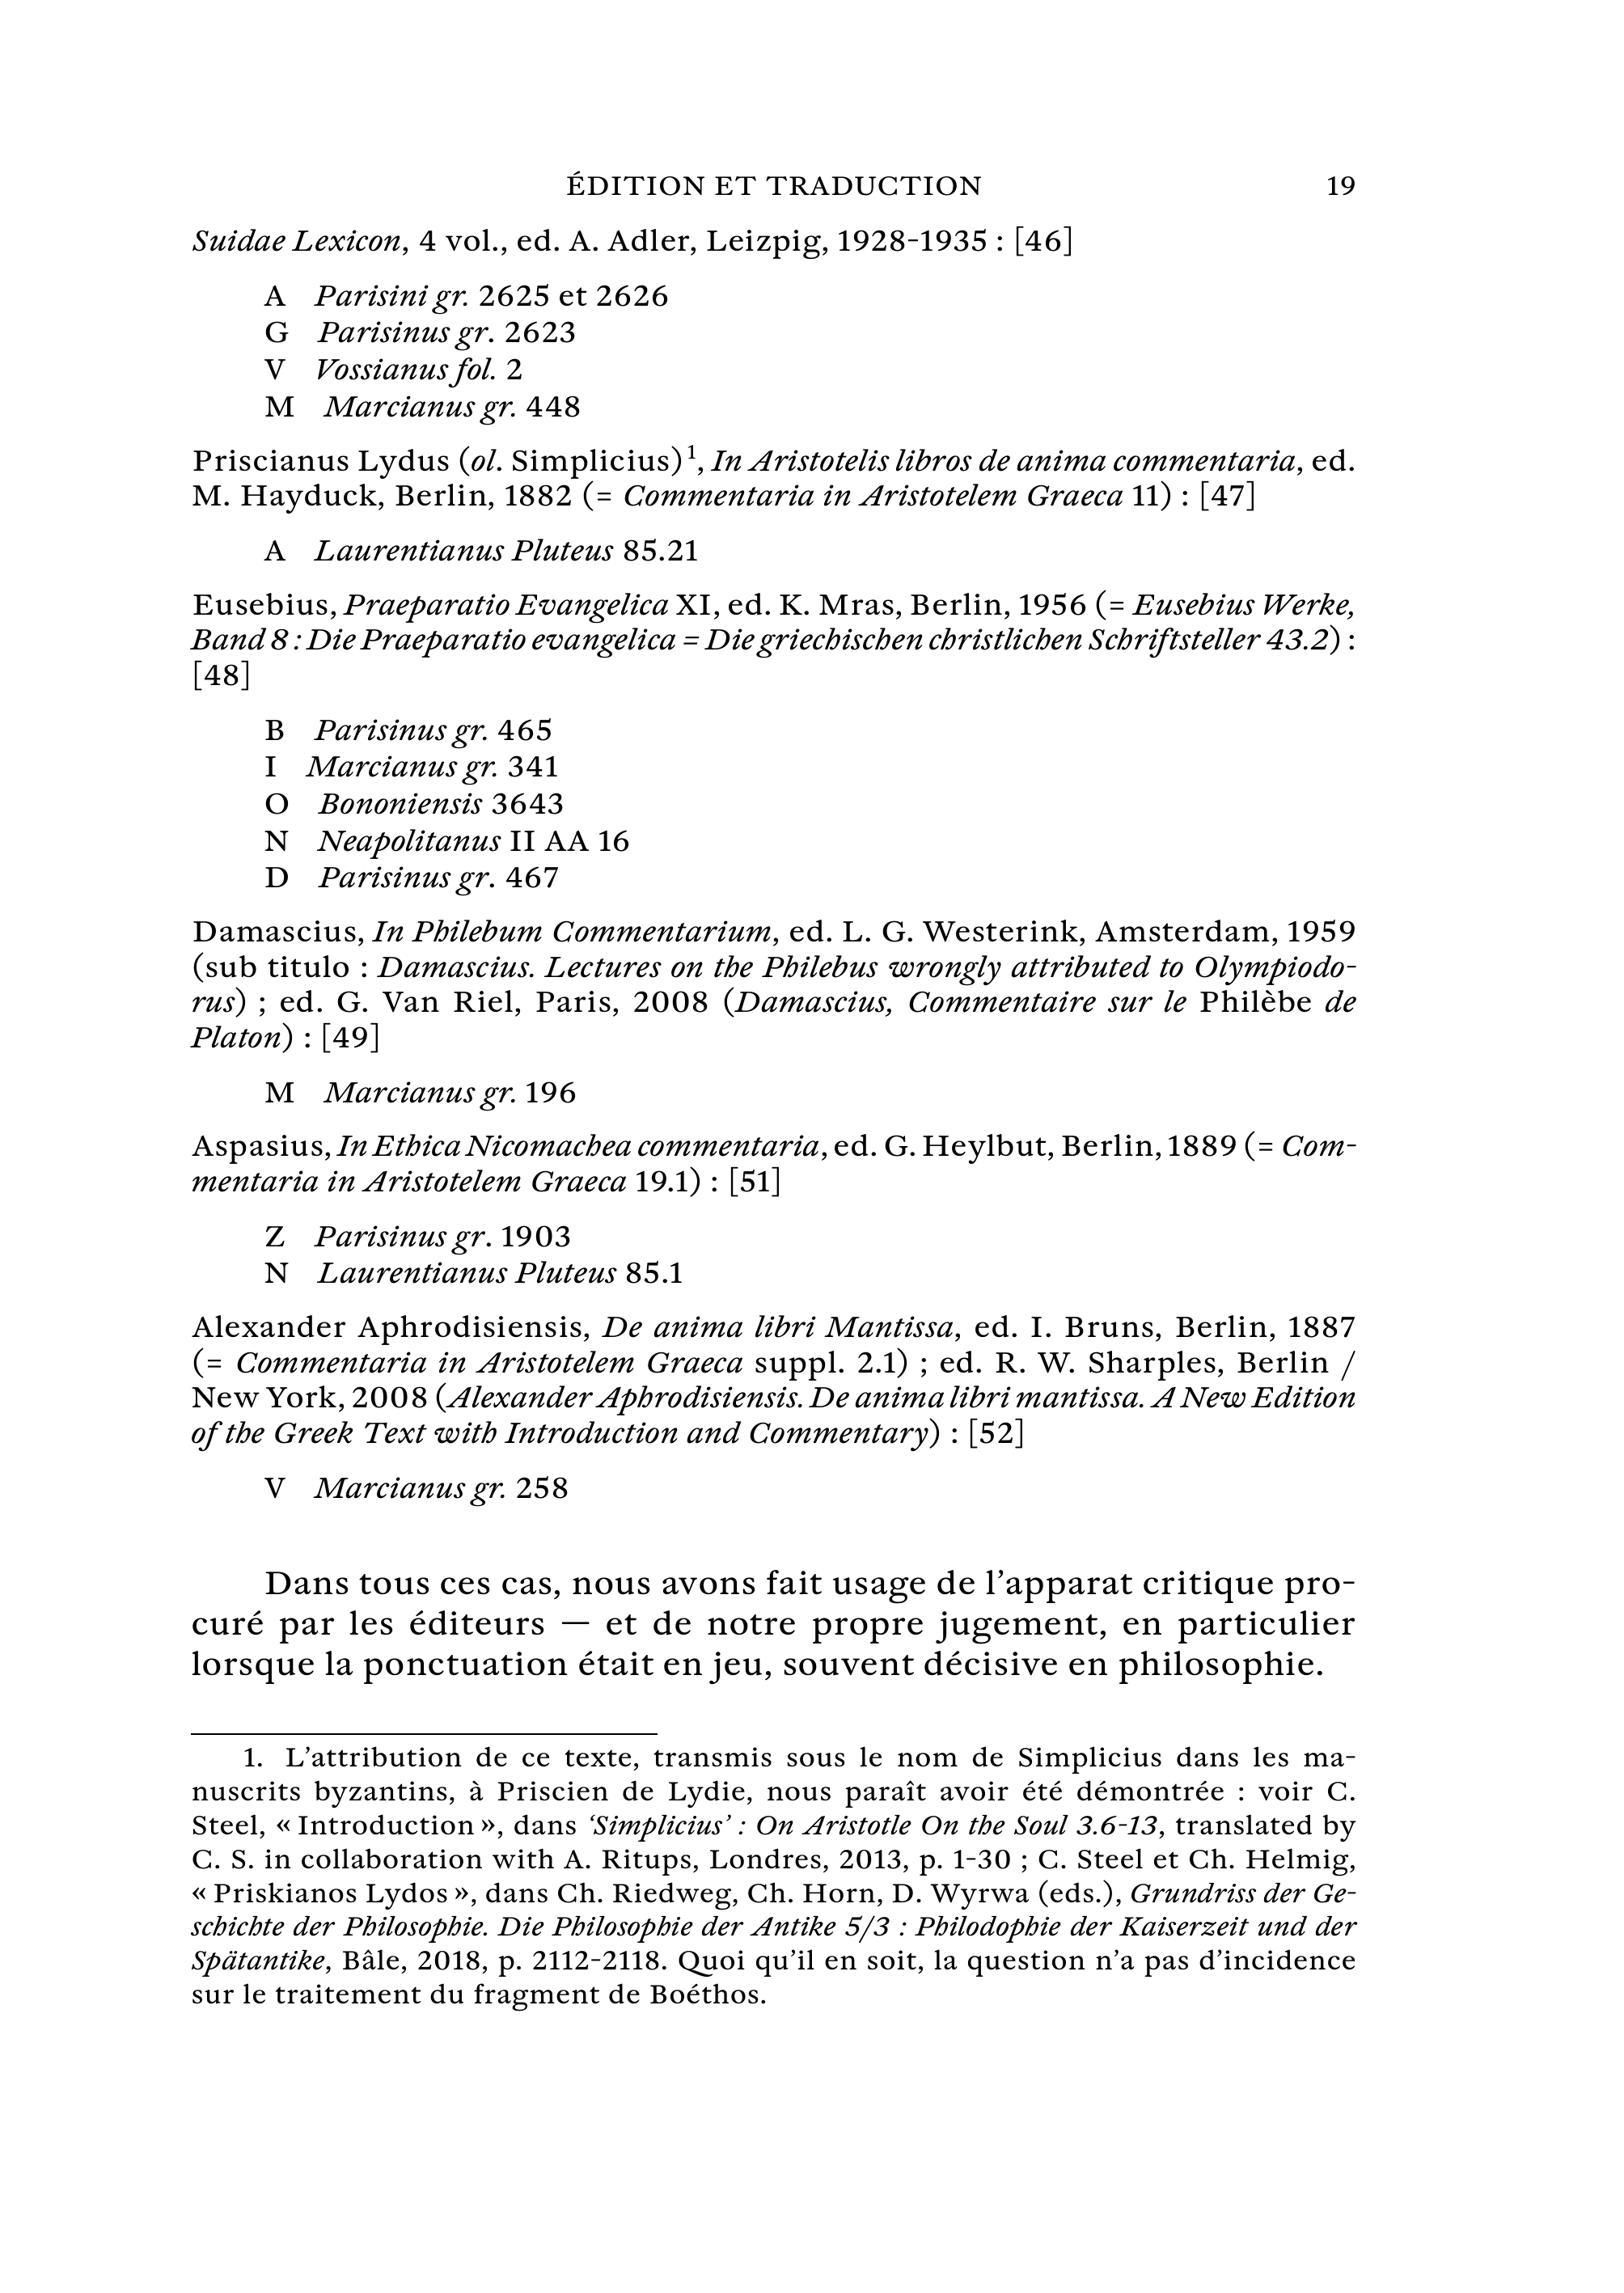 ÉDITION ET TRADUCTION 19
Suidae Lexicon, 4 vol., ed. A. Adler, Leizpig, 1928-1935 : [46]
A Parisini gr. 2625 et 2626
G Parisinus gr. 2623
V Vossianus fol. 2
M Marcianus gr. 448
Priscianus Lydus (ol. Simplicius)¹, In Aristotelis libros de anima commentaria, ed.
M. Hayduck, Berlin, 1882 (= Commentaria in Aristotelem Graeca 11) : [47]
A Laurentianus Pluteus 85.21
Eusebius, Praeparatio Evangelica XI, ed. K. Mras, Berlin, 1956 (= Eusebius Werke,
Band 8 : Die Praeparatio evangelica = Die griechischen christlichen Schriftsteller 43.2) :
[48]
B Parisinus gr. 465
I Marcianus gr. 341
O Bononiensis 3643
N Neapolitanus II AA 16
D Parisinus gr. 467
Damascius, In Philebum Commentarium, ed. L. G. Westerink, Amsterdam, 1959
(sub titulo : Damascius. Lectures on the Philebus wrongly attributed to Olympiodo-
rus) ; ed. G. Van Riel, Paris, 2008 (Damascius, Commentaire sur le Philèbe de
Platon) : [49]
M Marcianus gr. 196
Aspasius, In Ethica Nicomachea commentaria, ed. G. Heylbut, Berlin, 1889 (= Com-
mentaria in Aristotelem Graeca 19.1) : [51]
Z Parisinus gr. 1903
N Laurentianus Pluteus 85.1
Alexander Aphrodisiensis, De anima libri Mantissa, ed. I. Bruns, Berlin, 1887
(= Commentaria in Aristotelem Graeca suppl. 2.1) ; ed. R. W. Sharples, Berlin /
New York, 2008 (Alexander Aphrodisiensis. De anima libri mantissa. A New Edition
of the Greek Text with Introduction and Commentary) : [52]
V Marcianus gr. 258
Dans tous ces cas, nous avons fait usage de l’apparat critique pro-
curé par les éditeurs — et de notre propre jugement, en particulier
lorsque la ponctuation était en jeu, souvent décisive en philosophie.
1. L’attribution de ce texte, transmis sous le nom de Simplicius dans les ma-
nuscrits byzantins, à Priscien de Lydie, nous paraît avoir été démontrée : voir C.
Steel, « Introduction », dans ‘Simplicius’ : On Aristotle On the Soul 3.6-13, translated by
C. S. in collaboration with A. Ritups, Londres, 2013, p. 1-30 ; C. Steel et Ch. Helmig,
« Priskianos Lydos », dans Ch. Riedweg, Ch. Horn, D. Wyrwa (eds.), Grundriss der Ge-
schichte der Philosophie. Die Philosophie der Antike 5/3 : Philodophie der Kaiserzeit und der
Spätantike, Bâle, 2018, p. 2112-2118. Quoi qu’il en soit, la question n’a pas d’incidence
sur le traitement du fragment de Boéthos.